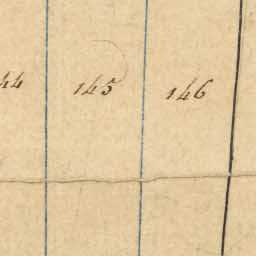 44 145 146